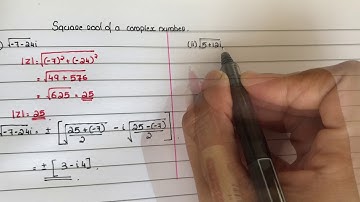 Square root of a complex number.
) √-7-24i
|Z| = √(-7)² + (-24)²
= √49 + 576
= √625 = 25
|Z| = 25
√-7-24i = ± [√25+(-7)/2 - i √25-(-7)/2]
= ± [3-i4]
(ii) √5+12i